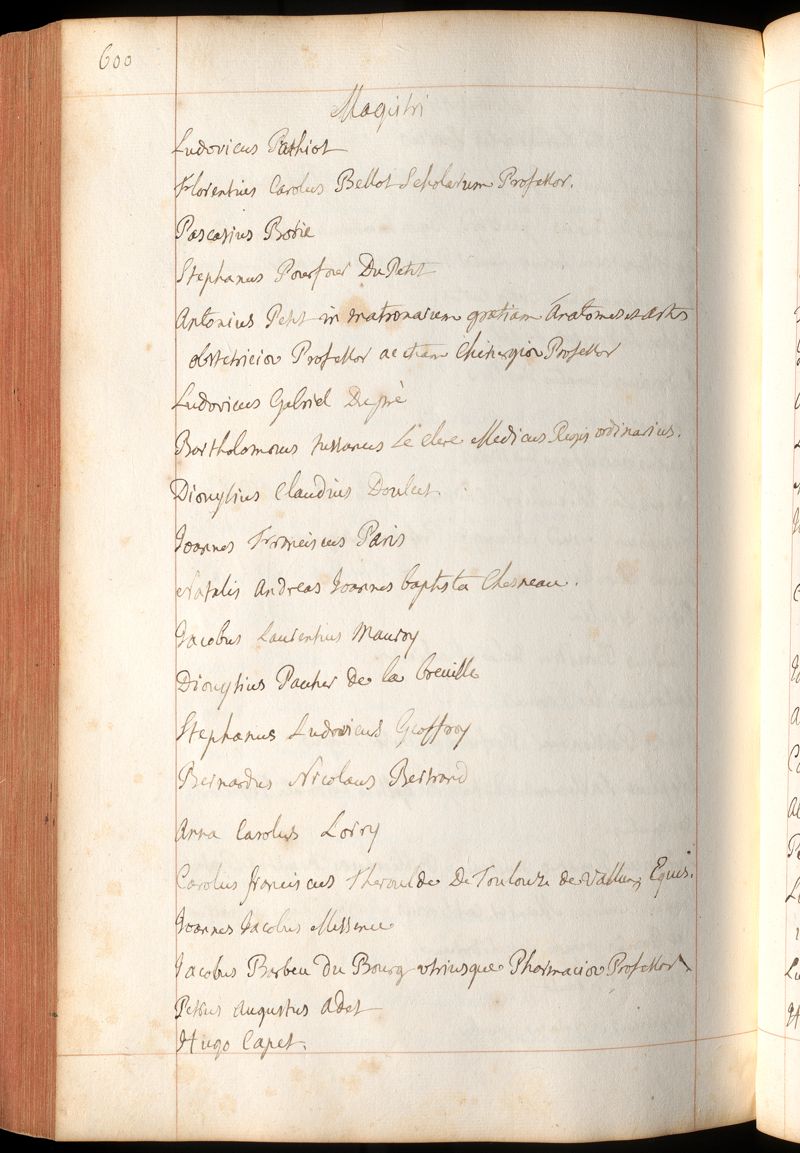 600
Magistri
Ludovicus Pathiot
Florentius Carolus Bellot Scholarum Professor.
Pascasius Borie
Stephanus Pourfour Du Petit
Antonius Petit in matronarum gratiam Anatomes et Artis
obstetriciæ Professor ac etiam Chirurgiæ Professor
Ludovicus Gabriel Dupré
Bartholomæus Tussanus Le Clerc Medicus Regis ordinarius.
Dionysius Claudius Doulcet.
Joannes Franciscus Paris
Natalis Andreas Joannes baptista Chesneau.
Jacobus Laurentius Mauroy
Dionysius Pautier de la breuille
Stephanus Ludovicus Geoffroy
Bernardus Nicolaus Bertrand
Anna Carolus Lorry
Carolus franciscus Theroulde De Toulouze de Vallun, Eques.
Joannes Jacobus Messence
Jacobus Barbeu du Bourg utriusque Pharmaciæ Professor
Petrus Augustus Adet
Hugo Capet.